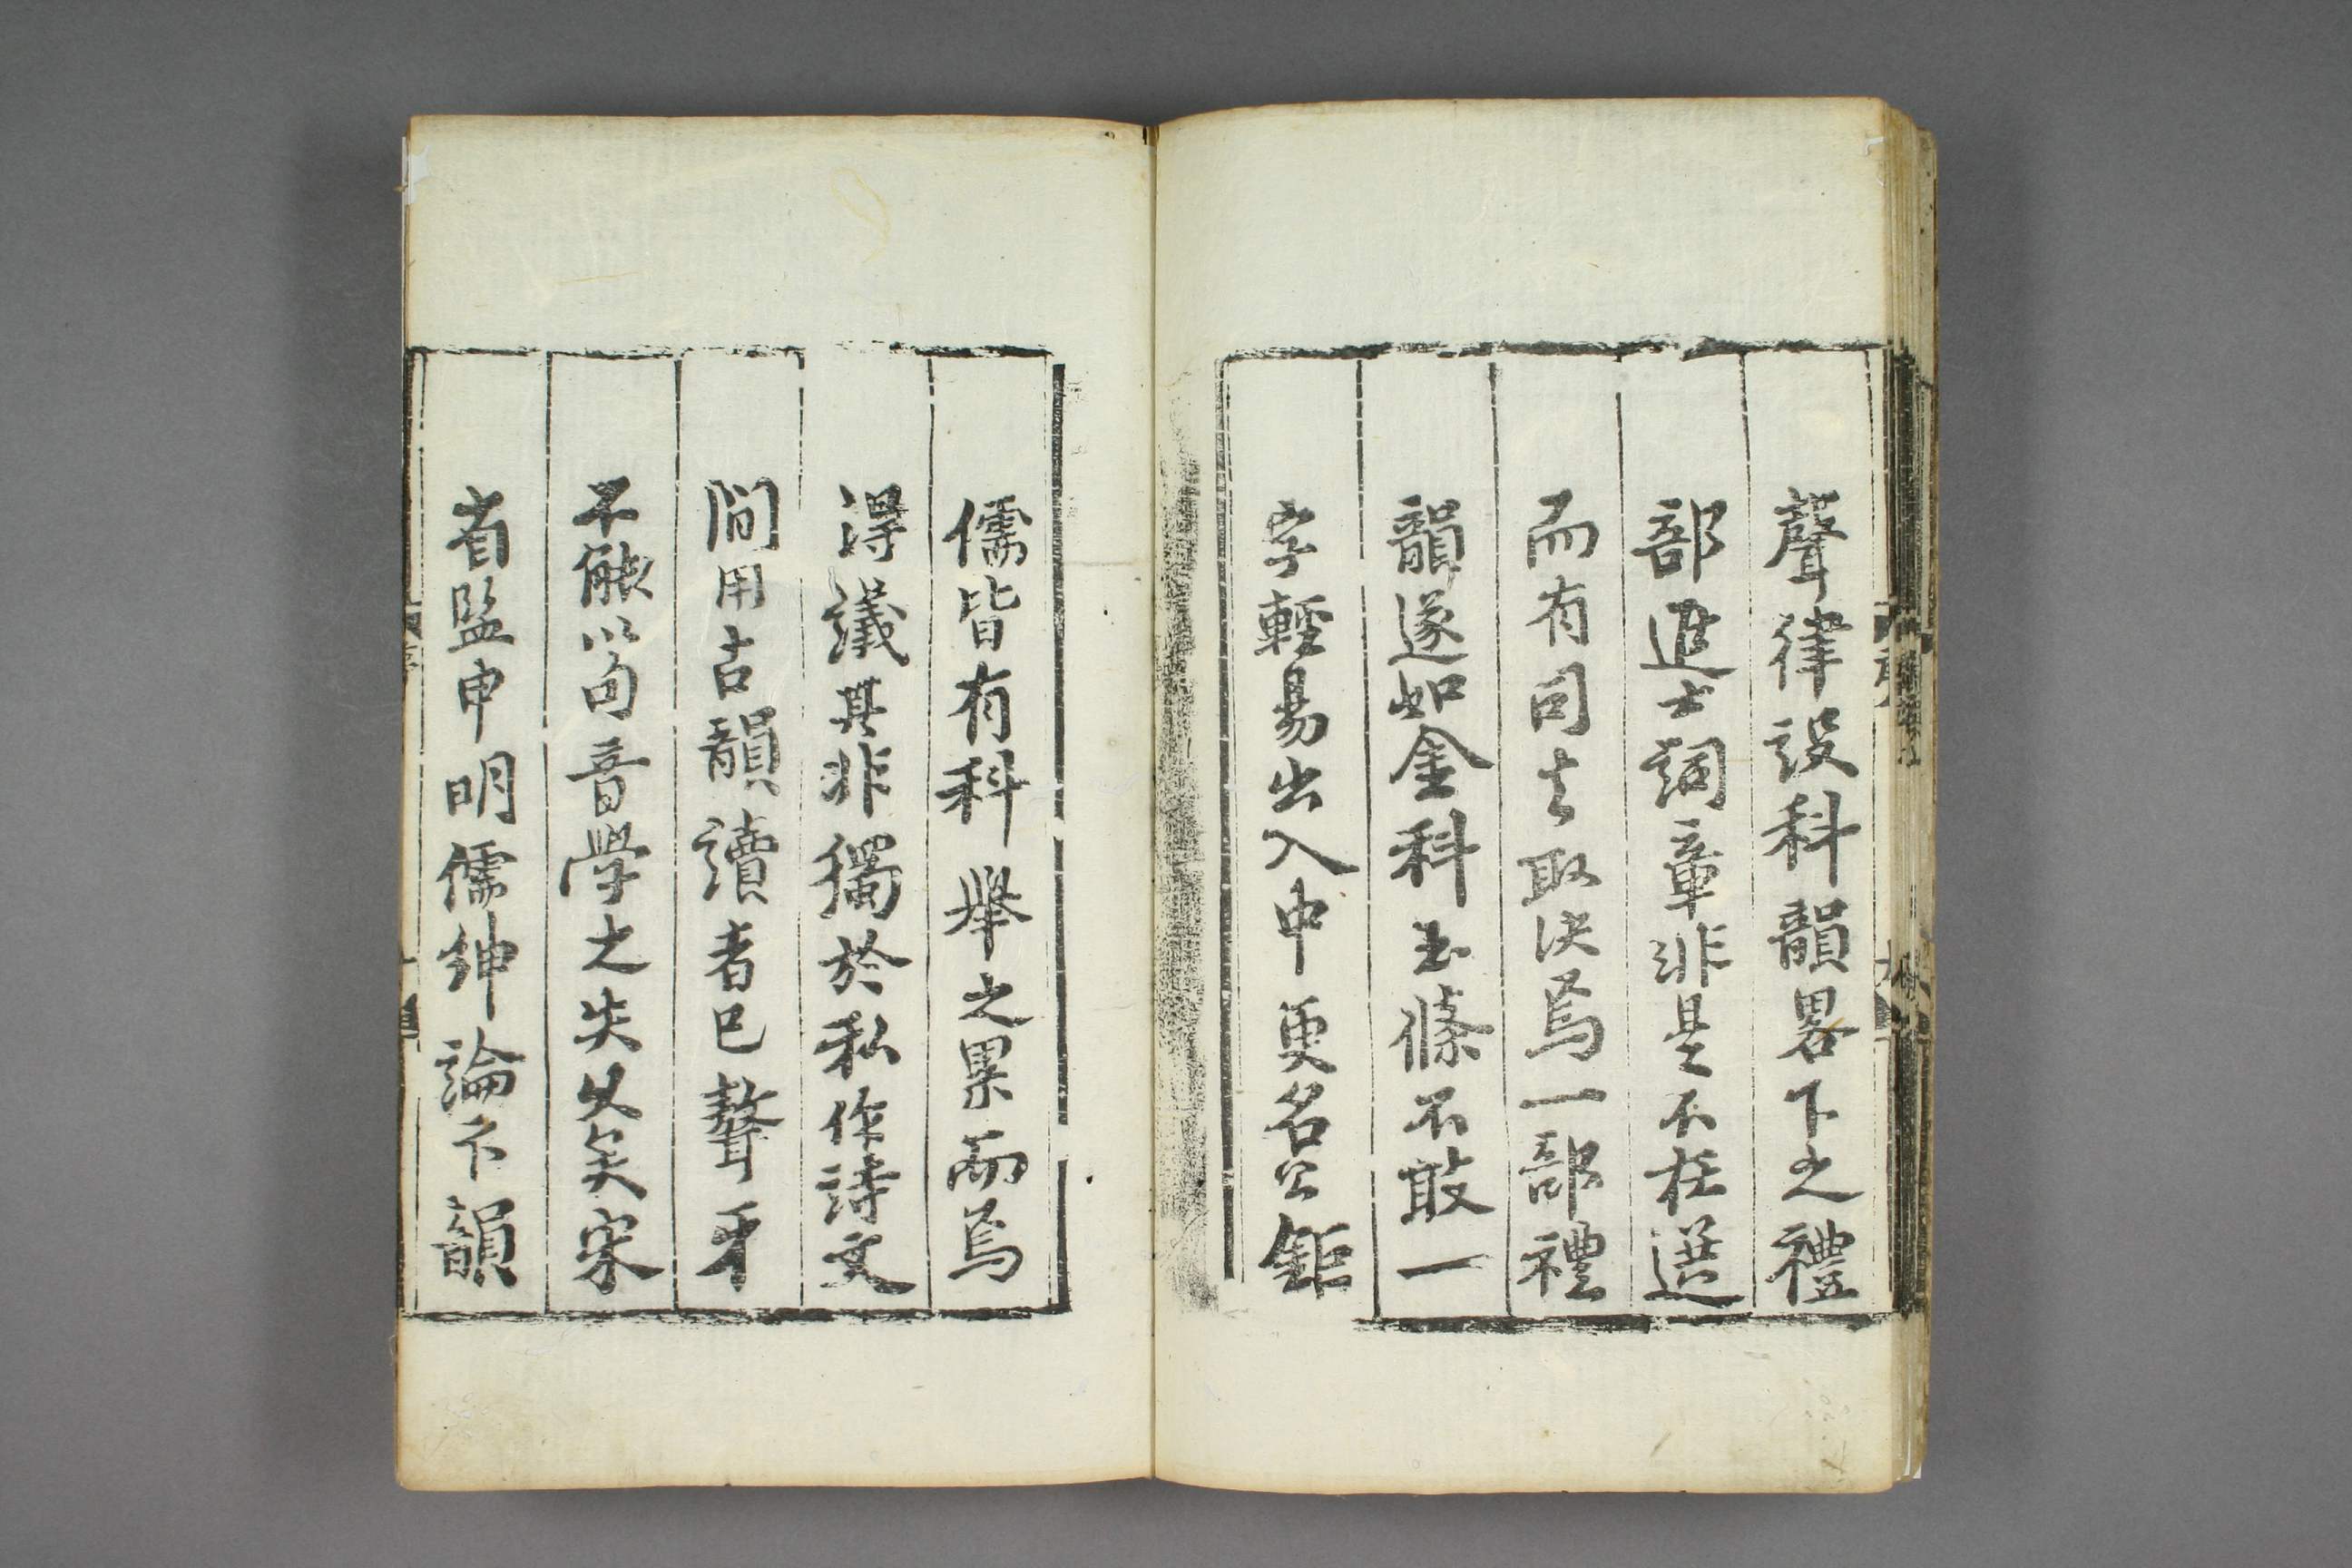 聲律設科韻畧下之禮
部進士詞章非是不在選
而有司去取决焉一部禮
韻遂如金科玉條不敢一
字輕易出入中更名公鉅
儒皆有科舉之累而焉
淂議其非獨於私作詩文
間用古韻讀者已聱牙
不能以句音學之失久矣宋
省監申明儒紳論卞韻